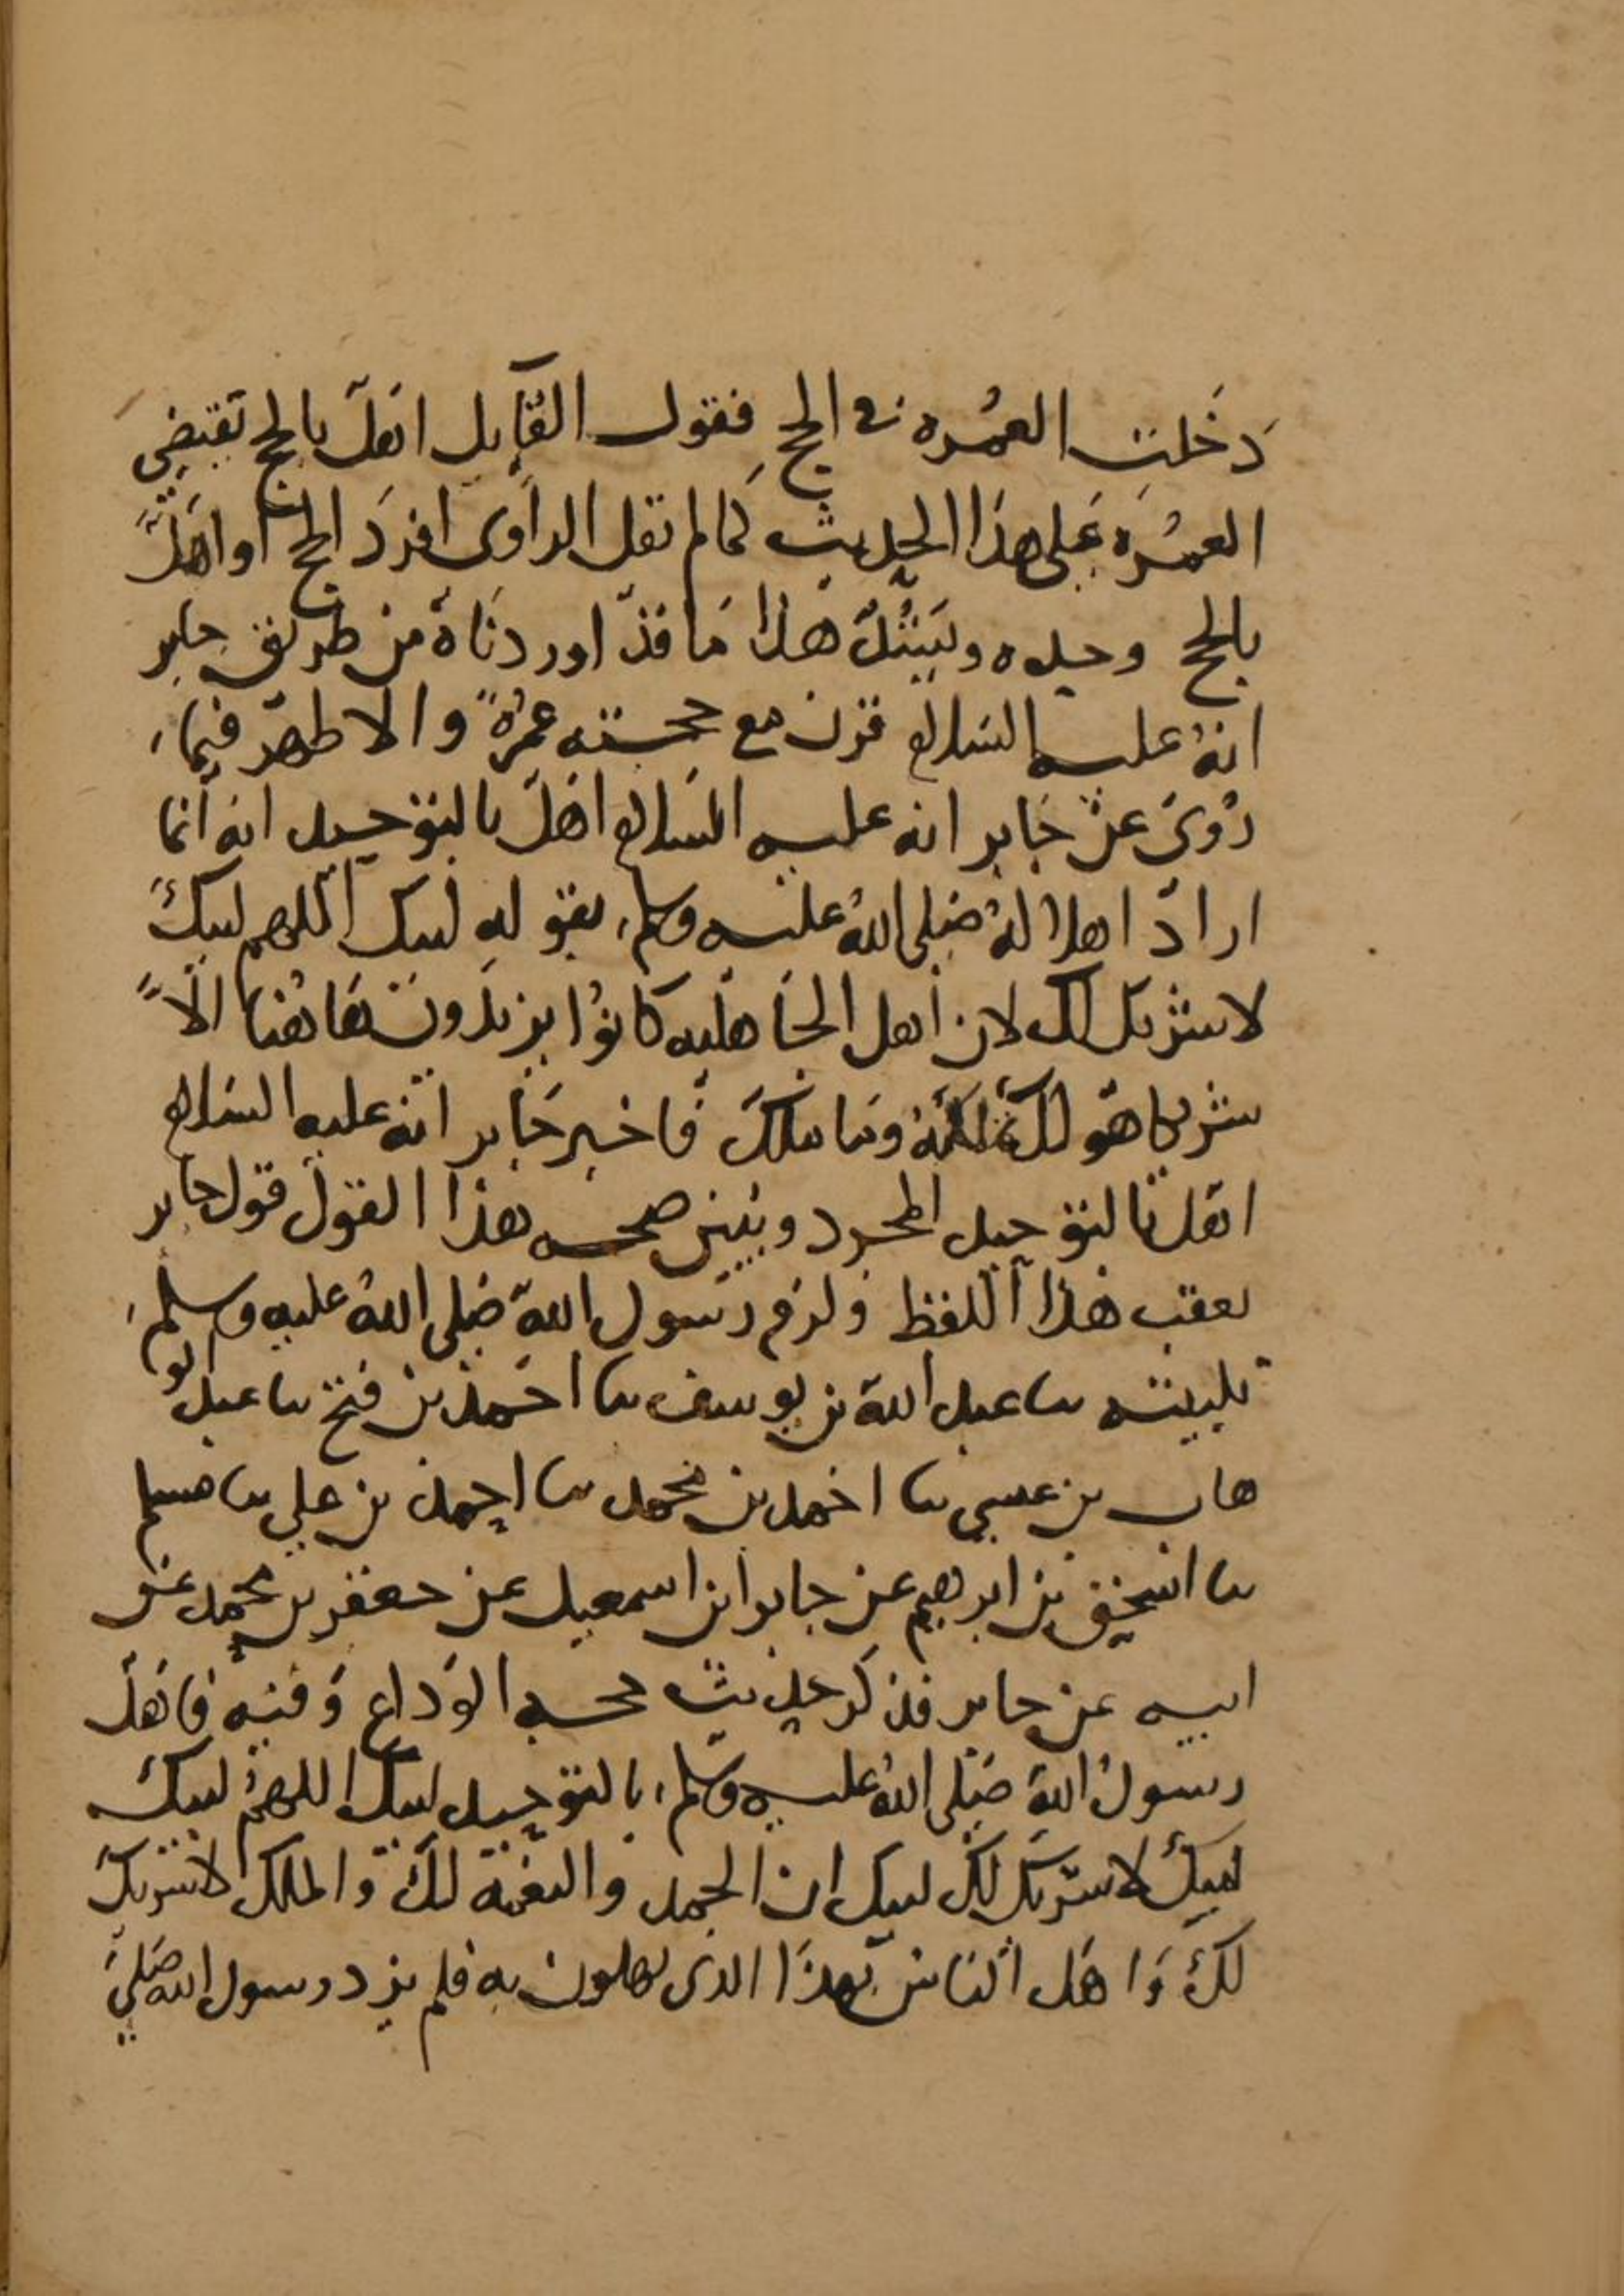 دَخلت العمُره في الحج فقول القآيل اهَلّ بالحج تقتضِي
العمُرَه عَلى هذا الحديث كما لم تقل الراوى افردَ الحج او اهَلَّ
بالحج وحده ويَبَيّنُ هذا مَا قدّ اوردنَاهُ من طريق جابر
انهُ عليه السّلام قرن مع حجته عمُرةً والاظهر فيما
رُوىَ عن جَابر انه عليه السَلام اهَلّ بالتوحيد انه انما
ارادَ اهلا لهُ صَلى اللهُ عليه وسلم بقوله لبيك اللهم لبيكَ
لا شريك لك لان اهل الجَاهليه كانوُا يزيدَون هَاهُنا الّا
شريكا هو لك تملكهُ وما ملكَ فاخبر جَابر انه عليه السّلام
اهل بالتوحيد المجرد ويبين صحه هذا القولَ قول جابر
بعقب هذا اللفظ ولزم رسَول الله صَلى اللهُ عليه وسلم
تلبيته نا عبد الله بن يوسف نا احَمد بن فتح نا عبد الو
هاب بن عيسى نا احَمد بن محمد نا احمد بن علي نا مسلم
نا اسحق بن ابرهيم عن جابر ابن اسمعيل عن جعفر بن محمد عن
ابيه عن جابر فذكر حديث حجه الوَداع وَفيه فاهَلّ
رسولُ الله صَلى اللهُ عليه وسلم بالتوحيد لبيك اللهمُ لبيك
لبيكَ لا شريَك لكَ لبيك ان الحمد والنعمة لكَ والملك لا شريكَ
لكَ وَاهَل الناس بهذَا الذى يهلون به فلم يزد رسول الله صَلي